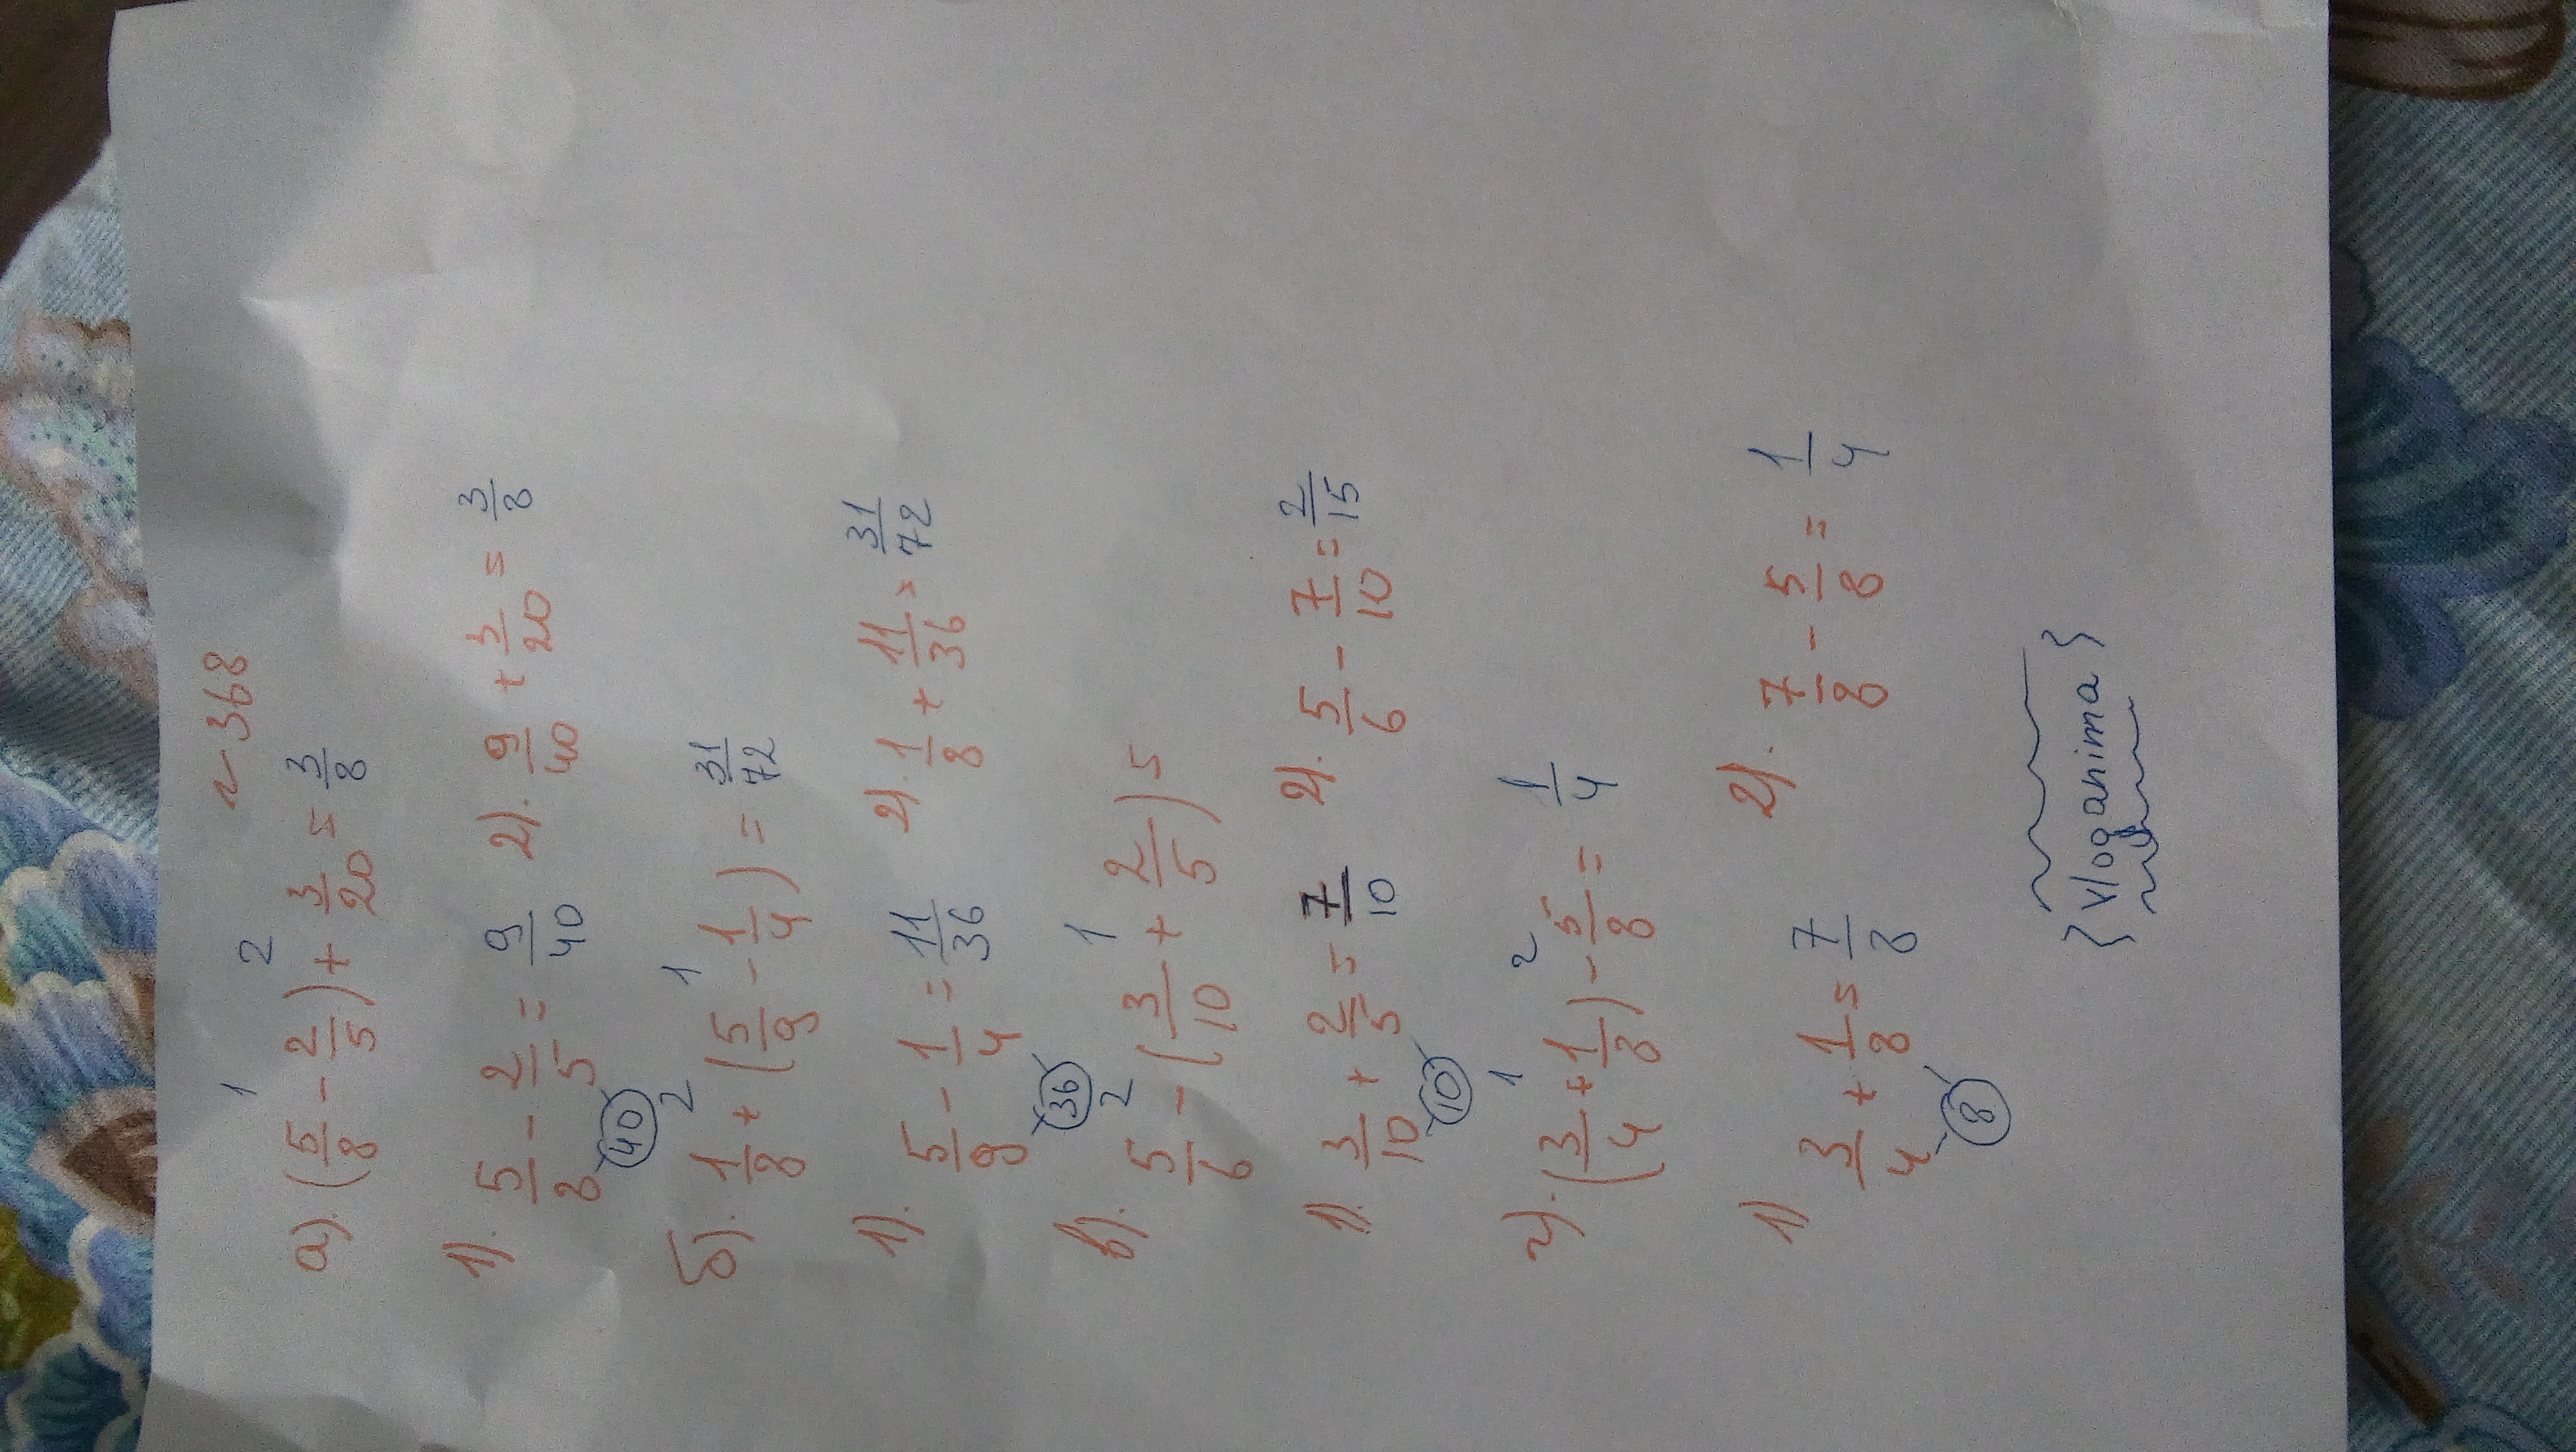 №368
а). (5/8 - 2/5) + 3/20 = 3/8
1 2
1). 5/8 - 2/5 = 9/40 2). 9/40 + 3/20 = 3/8
40
б). 1/8 + (5/9 - 1/4) = 31/72
2 1
1). 5/9 - 1/4 = 11/36 2). 1/8 + 11/36 = 31/72
36
в). 5/6 - (3/10 + 2/5) =
2 1
1). 3/10 + 2/5 = 7/10 2). 5/6 - 7/10 = 2/15
10
г). (3/4 + 1/8) - 5/8 = 1/4
1 2
1) 3/4 + 1/8 = 7/8 2). 7/8 - 5/8 = 1/4
8
{Vloganima}